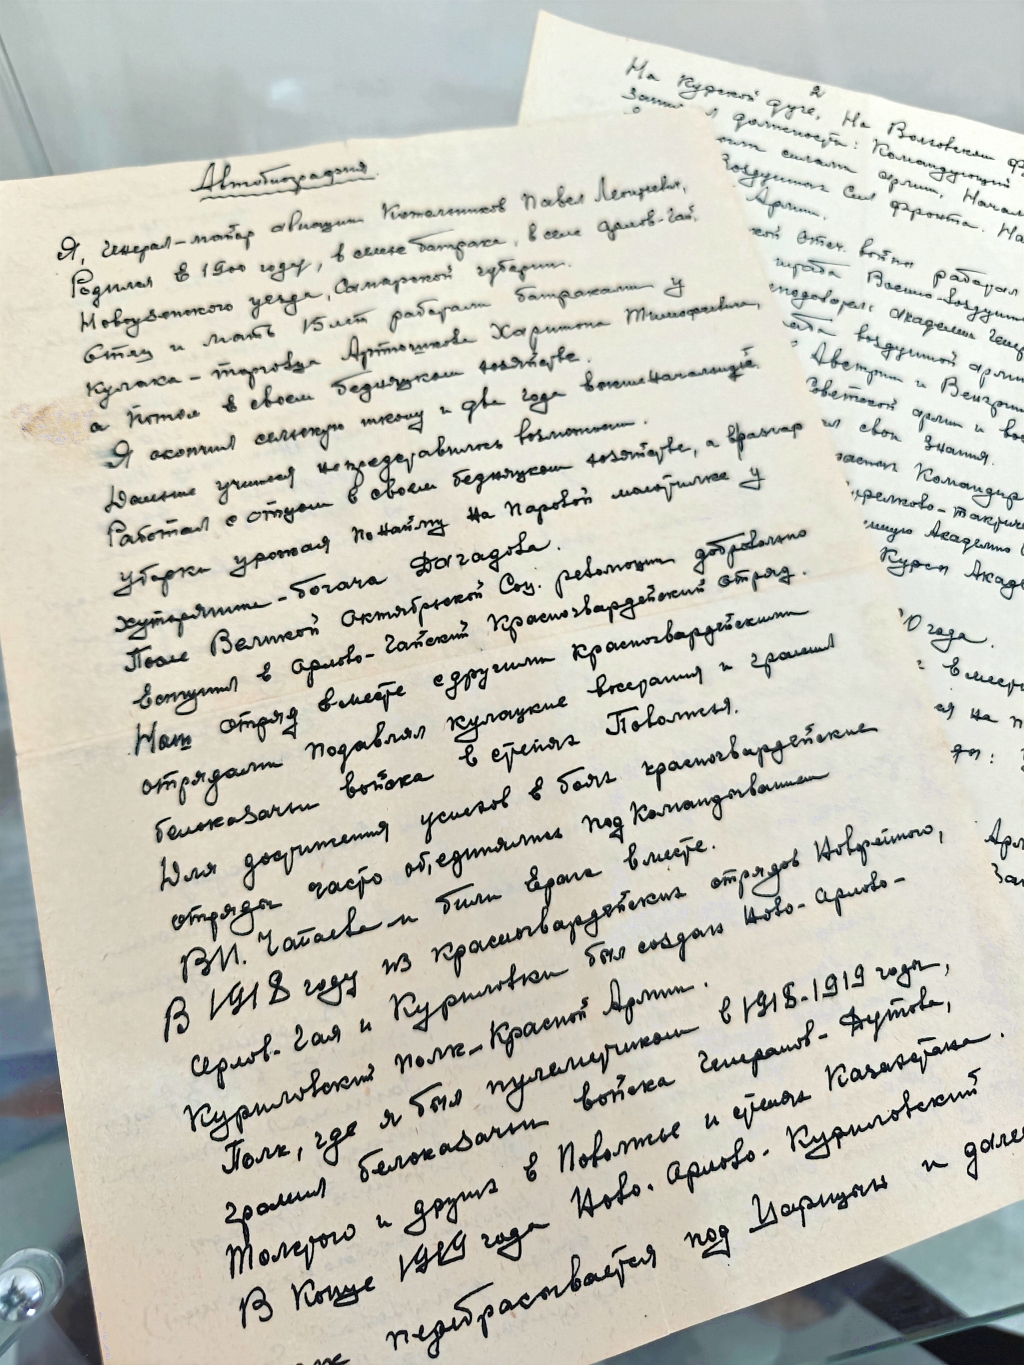 Автобиография
Я, генерал-майор авиации Котельников Павел Леонтьевич,
Родился в 1900 году, в семье батрака, в селе Орлов-Гай,
Новоузенского уезда, Самарской губернии.
Отец и мать 15 лет работали батраками у
кулака-торговца Артюшкова Харитона Тимофеевича,
а потом в своем бедняцком хозяйстве.
Я окончил сельскую школу и два года высшеначальную,
Дальше учиться непредставилось возможности.
Работал с отцом в своем бедняцком хозяйстве, а вразгар
уборки урожая по найму на паровой молотилке у
хуторянина-богача Догадова.
После Великой Октябрьской Соц. революции добровольно
вступил в Орлово-Гайский Красногвардейский отряд.
Наш отряд вместе с другими красногвардейскими
отрядами подавлял кулацкие восстания и громил
белоказачьи войска в степях Поволжья.
Для достижения успехов в боях красногвардейские
отряды часто объединялись под командованием
В.И. Чапаева и били врага вместе.
В 1918 году из красногвардейских отрядов Новорепного,
Орлов-Гая и Куриловки был создан Ново-Орлово-
Куриловский полк-Красной Армии.
Полк, где я был пулеметчиком в 1918-1919 годы,
громил белоказачьи войска Генералов-Дутова,
Толстого и других в Поволжье и степях Казахстана.
В Конце 1919 года Ново-Орлово-Куриловский
перебрасывается под Царицын и далее
2
На Курской дуге, На Волховском
должности: Командующий
силами армии, Начал
Воздушных Сил Фронта. На
Армии.
Отеч. войны работал
штаба Военно-Воздушн
академии Генер
воздушной армии
Австрии и Венгрии
Советской армии и
свои знания.
Командир
Стрелково-тактич
Академию
Курсы Акаде
0 года.
вместе
на п